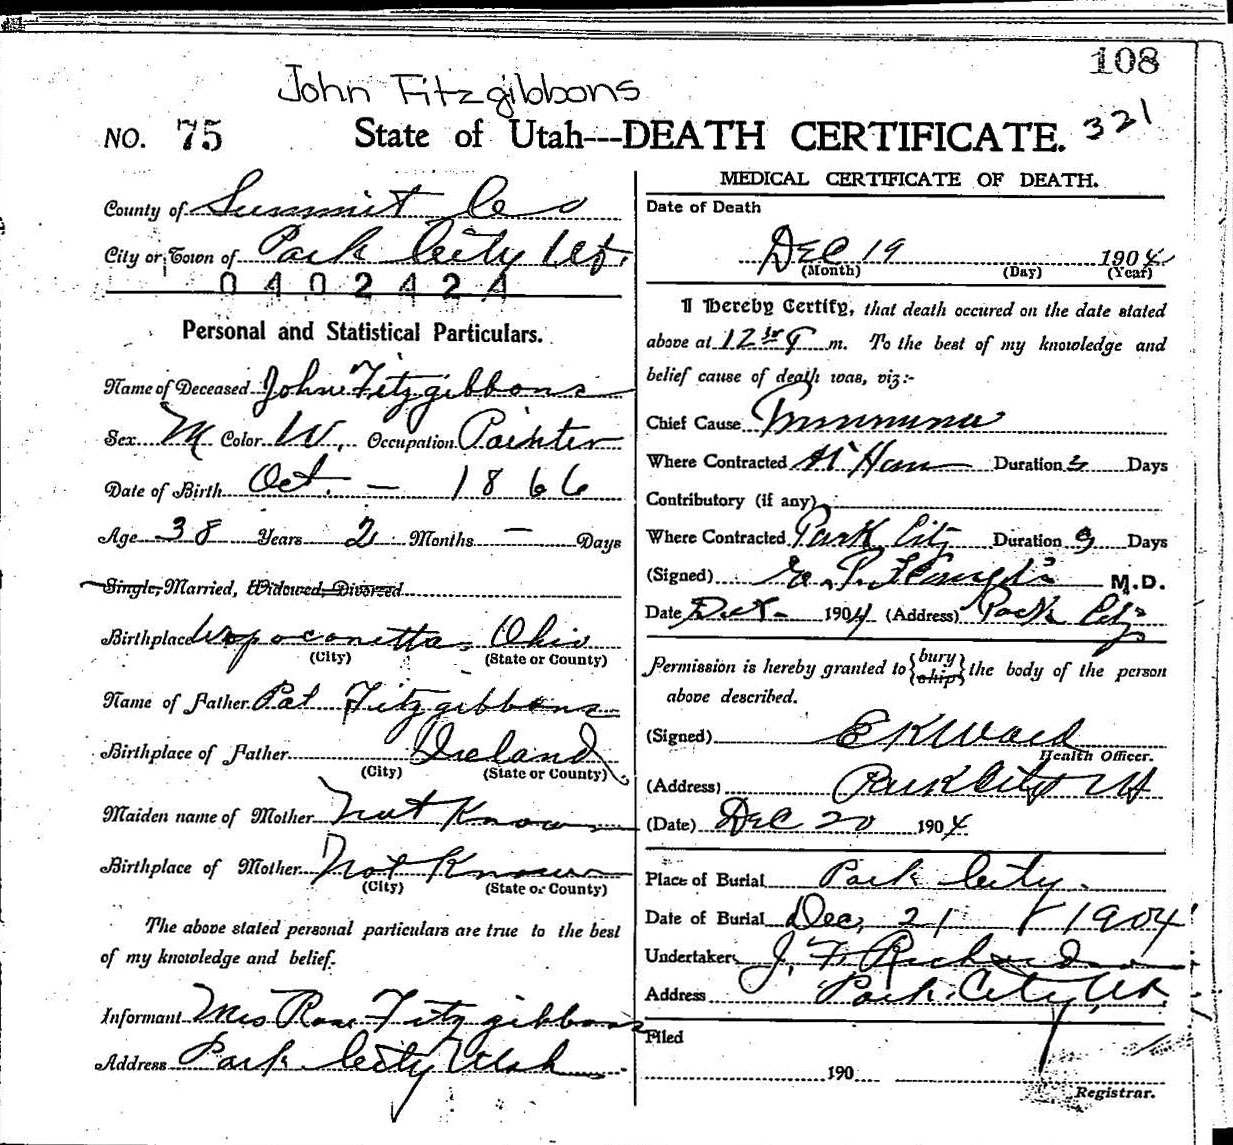 108
John Fitzgibbons
NO. 75 State of Utah---DEATH CERTIFICATE. 321
County of Summit Co
City or Town of Park City Ut.
0402424
Personal and Statistical Particulars.
Name of Deceased John Fitzgibbons
Sex M Color W. Occupation Painter
Date of Birth Oct. - 1866
Age 38 Years 2 Months - Days
Single, Married, Widowed, Divorced
Birthplace Wopoconetta, Ohio
(City) (State or County)
Name of Father Pat Fitzgibbons
Birthplace of Father Ireland
(City) (State or County)
Maiden name of Mother Not Known
Birthplace of Mother Not Known
(City) (State or County)
The above stated personal particulars are true to the best
of my knowledge and belief.
Informant Mrs Rose Fitzgibbons
Address Park City Utah
MEDICAL CERTIFICATE OF DEATH.
Date of Death
Dec 19 1904
(Month) (Day) (Year)
I Hereby Certify, that death occured on the date stated
above at 12 m. To the best of my knowledge and
belief cause of death was, viz:-
Chief Cause Pneumonia
Where Contracted At Home Duration 3 Days
Contributory (if any)
Where Contracted Park City Duration 9 Days
(Signed) M.D.
Date 1904 (Address) Park City
Permission is hereby granted to {bury ship} the body of the person
above described.
(Signed) E K Ward
Health Officer.
(Address) Park City Ut
(Date) Dec 20 1904
Place of Burial Park City.
Date of Burial Dec, 21 1904
Undertaker J. F. Richardson
Address Park City, Ut.
Filed
190
Registrar.